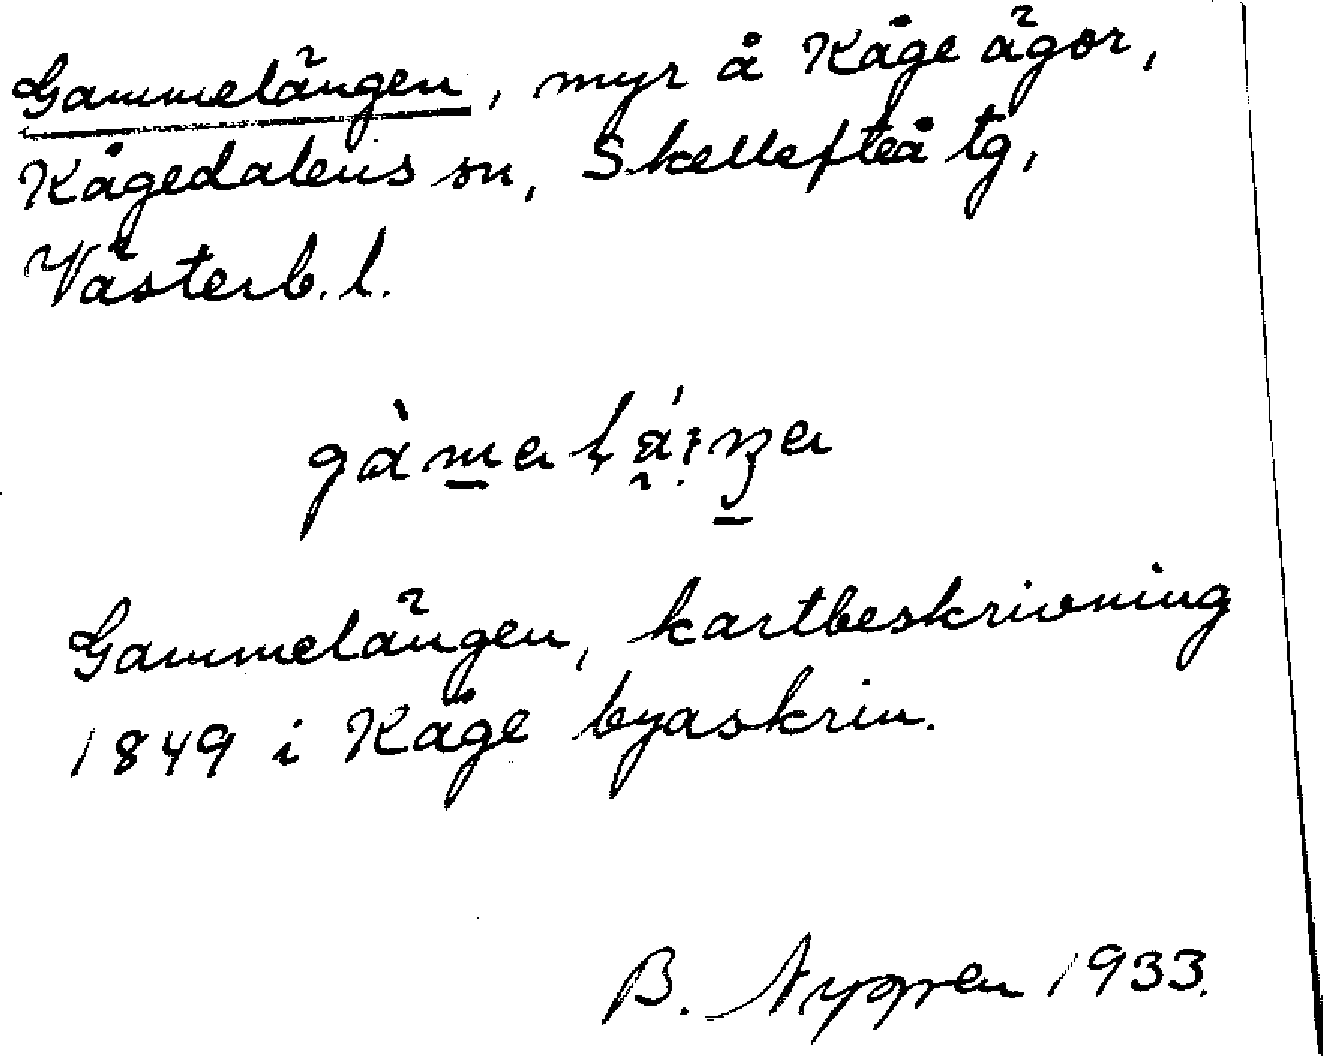 Gammelängen, myr å Kåge ägor,
Kågedalens sn, Skellefteå tg,
Västerb. l.
Gammelängen, kartbeskrivning
1849 i Kåge byaskrin.
B. Nygren 1933.